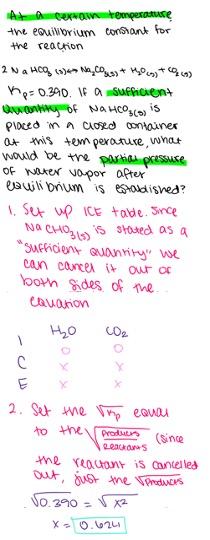 At a certain temperature
the equilibrium constant for
the reaction
2 NaHCO3(s) ⇌ Na2CO3(s) + H2O(g) + CO2(g)
Kp = 0.390. If a sufficient
Quantity of NaHCO3(s) is
placed in a closed container
at this temperature, what
would be the partial pressure
of water vapor after
equilibrium is established?
1. Set up ICE table. Since
NaCHO3(s) is stated as a
"sufficient quantity" we
can cancel it out of
both sides of the
equation
H2O CO2
I 0 0
C x x
E x x
2. Set the √Kp equal
to the √Products/Reactants (Since
the reactant is cancelled
out, just the √Products
√0.390 = √x2
x = 0.624